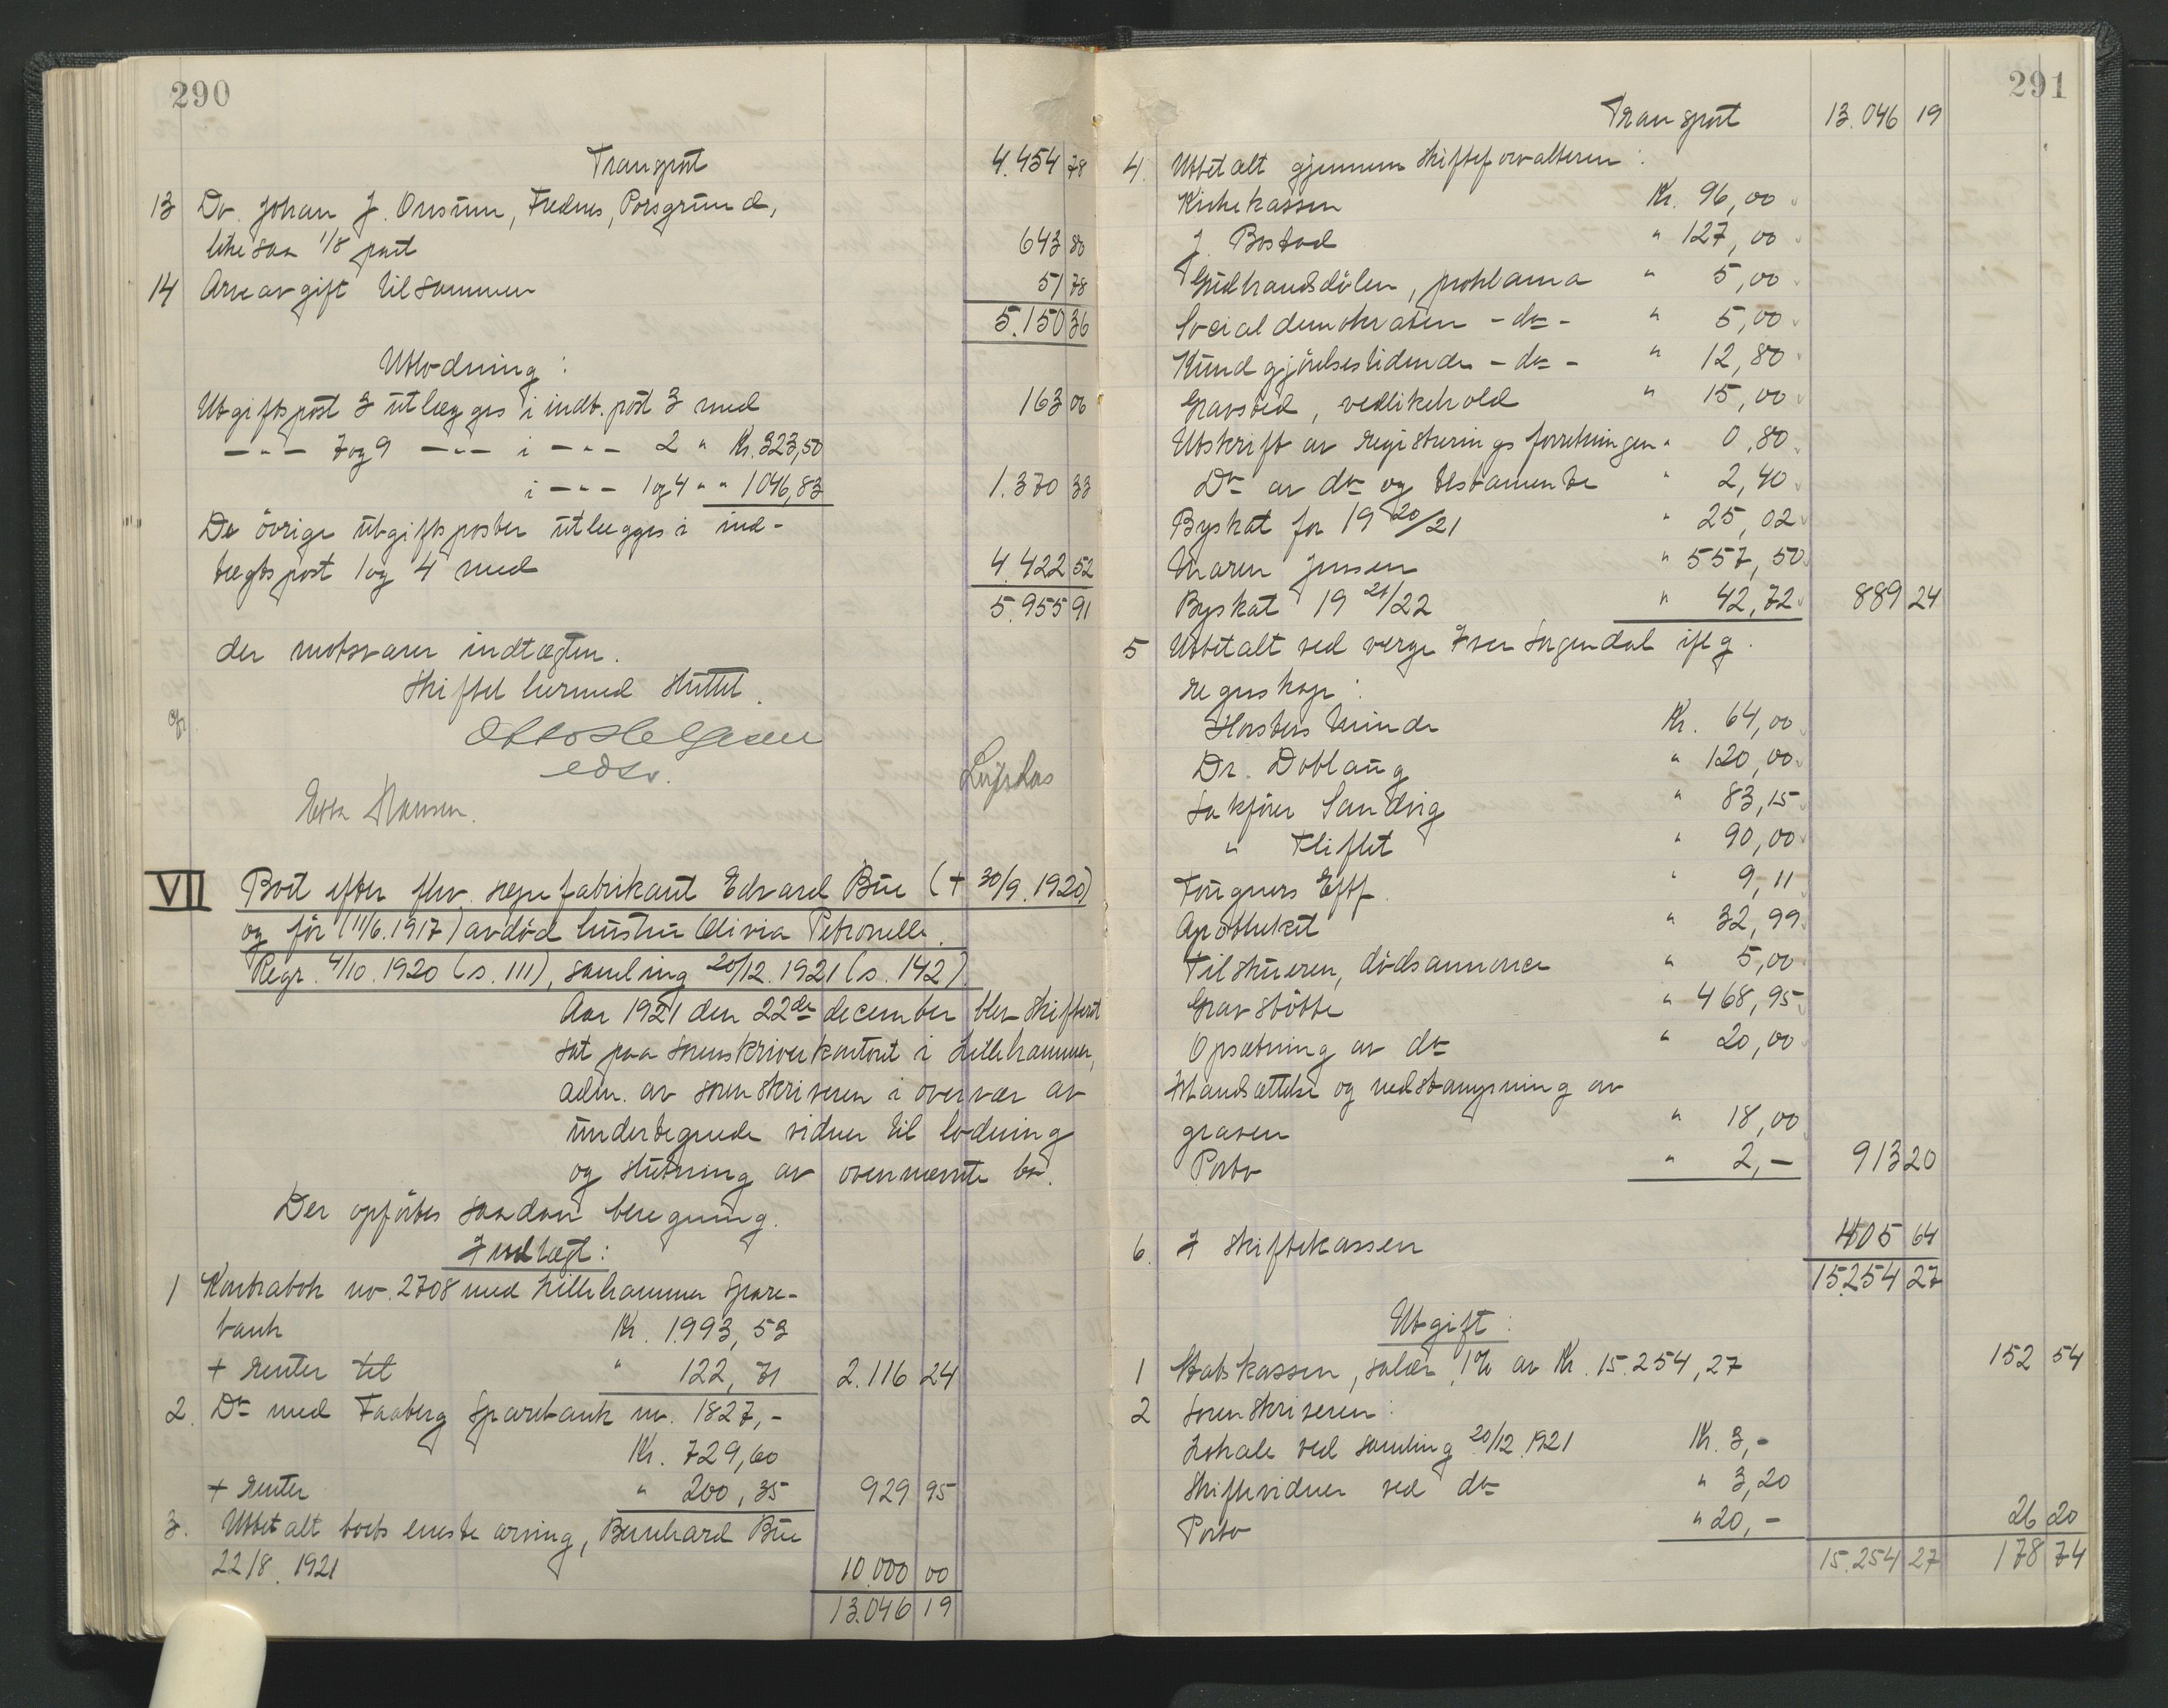 290
Transport 4.454 78
13 Do. Johan J. Onsum, Frednes, Porsgrund,
likesaa 1/8 part 643 80
14 Arveavgift tilsammen 51 78
5.150 36
Utlodning:
Utgiftspost 3 utlægges i indt. post 3 med 163 06
-"- 7 og 9 -"- i -"- 2 " Kr. 323,50
i -"- 1 og 4 " " 1046,83 1.370 33
De övrige utgiftsposter utlegges i ind-
tægtspost 1 og 4 med 4.422 52
5.955 91
der motsvarer indtægten.
Skiftet hermed sluttet.
Otto Helgesen
edsv.
Ebba Hansen.
VII Boet efter fhv. sæpefabrikant Edvard Bue (+ 30/9.1920)
og før (11/6.1917) avdöd hustru Olivia Petronelle.
Regr. 4/10.1920 (s. 111), samling 20/12.1921 (s. 142)
Aar 1921 den 22de december blev skifteret
sat paa sorenskriverkontoret i Lillehammer,
adm. av sorenskriveren i overvær av
undertegnede vidner til lodning
og slutning av ovennævnte bo.
Der opförtes saadan beregning.
Indtægt:
1 Kontrabok no. 2708 med Lillehammer Spare-
bank Kr. 1993,53
+ renter til " 122,71 2.116 24
2. Do med Faaberg Sparebank no. 1827,-
Kr. 729,60
+ renter " 200,35 929 95
3. Utbetalt boets eneste arving, Bernhard Bue
22/8. 1921 10.000 00
13.046 19
291
Transport 13.046 19
4. Utbetalt gjennem skifteforvalteren:
Kirkekassen Kr. 96,00
J. Bostad " 127,00
Gudbrandsdölen, proklama " 5,00
Socialdemokraten - do - " 5,00
Kundgjörelsestidende - do - " 12,80
Gravsted, vedlikehold " 15,00
Utskrift av registreringsforretningen " 0,80
Do av do og testamente " 2,40
Byskat for 1920/21 " 25,02
Maren Jensen " 557,50
Byskat 1921/22 " 42,72 889 24
5 Utbetalt ved verge Iver Sogendal iflg.
regnskap:
Horsters Minde Kr. 64,00
Dr. Doblaug " 120,00
Sakfører Sandvig " 83,15
" Fliflet " 90,00
Fougners Eftf. " 9,11
Apotheket " 32,99
Tilskueren, dödsannonce " 5,00
Gravstötte " 468,95
Opsætning av do " 20,00
Istandsættelse og nedstampning av
graven " 18,00
Porto " 2,- 913 20
6. I skiftekassen 405 64
15.254 27
Utgift:
1 Statskassen, salær, 1% av Kr. 15.254,27 152 54
2 Sorenskriveren:
Lokale ved samling 20/12.1921 Kr. 3,-
Skiftevidner ved do " 3,20
Porto " 20,- 26 20
15.254 27 178 74